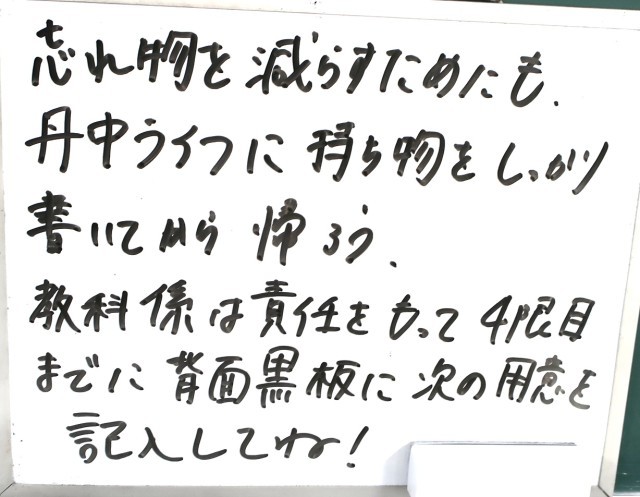 忘れ物を減らすためにも、
丹中ライフに持ち物をしっかり
書いてから帰ろう。
教科係は責任をもって4限目
までに背面黒板に次の用意を
記入してね!